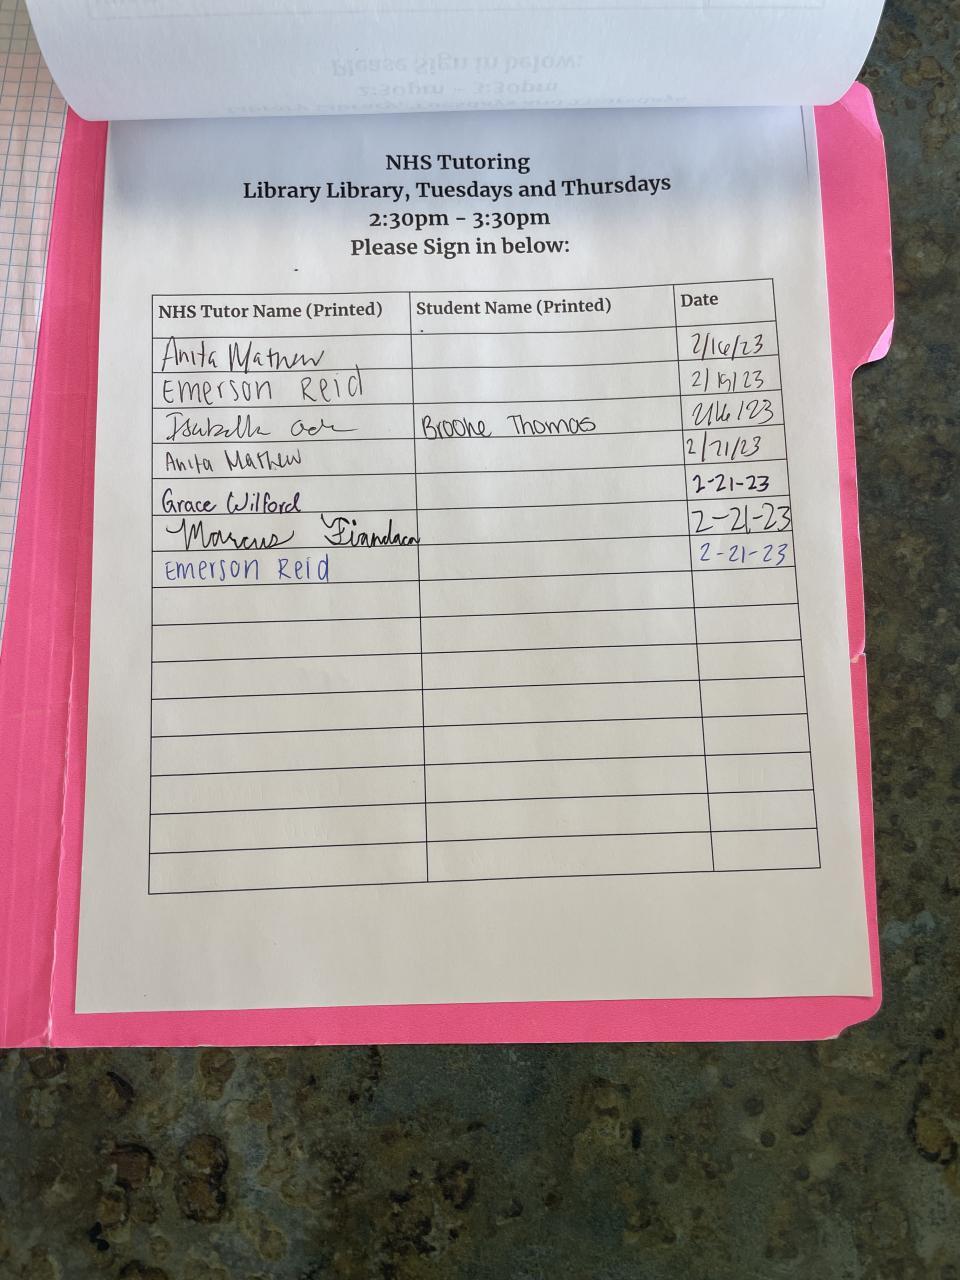 Please Sign in below:
2:30pm - 3:30pm
NHS Tutoring
Library Library, Tuesdays and Thursdays
2:30pm - 3:30pm
Please Sign in below:
NHS Tutor Name (Printed) Student Name (Printed) Date
Anita Mathew 2/16/23
Emerson Reid 2/ /23
Isabella Brooke Thomas 2/16/23
Anita Mathew 2/21/23
Grace Wilford 2-21-23
Marcus Fiandaca 2-21-23
Emerson Reid 2-21-23